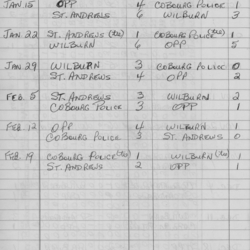 JAN 15 OPP 4 COBOURG POLICE 1
ST. ANDREWS 6 WILBURN 3
JAN 22 ST. ANDREWS (tie) 1 COBOURG POLICE (tie) 1
WILBURN 6 OPP 5
JAN 29 WILBURN 3 COBOURG POLICE 0
ST. ANDREWS 4 OPP 2
FEB. 5 ST. ANDREWS 3 WILBURN 2
COBOURG POLICE 3 OPP 1
FEB. 12 OPP 4 WILBURN 1
COBOURG POLICE 3 ST. ANDREWS 0
FEB. 19 COBOURG POLICE (tie) 1 WILBURN (tie) 1
ST. ANDREWS 2 OPP 1